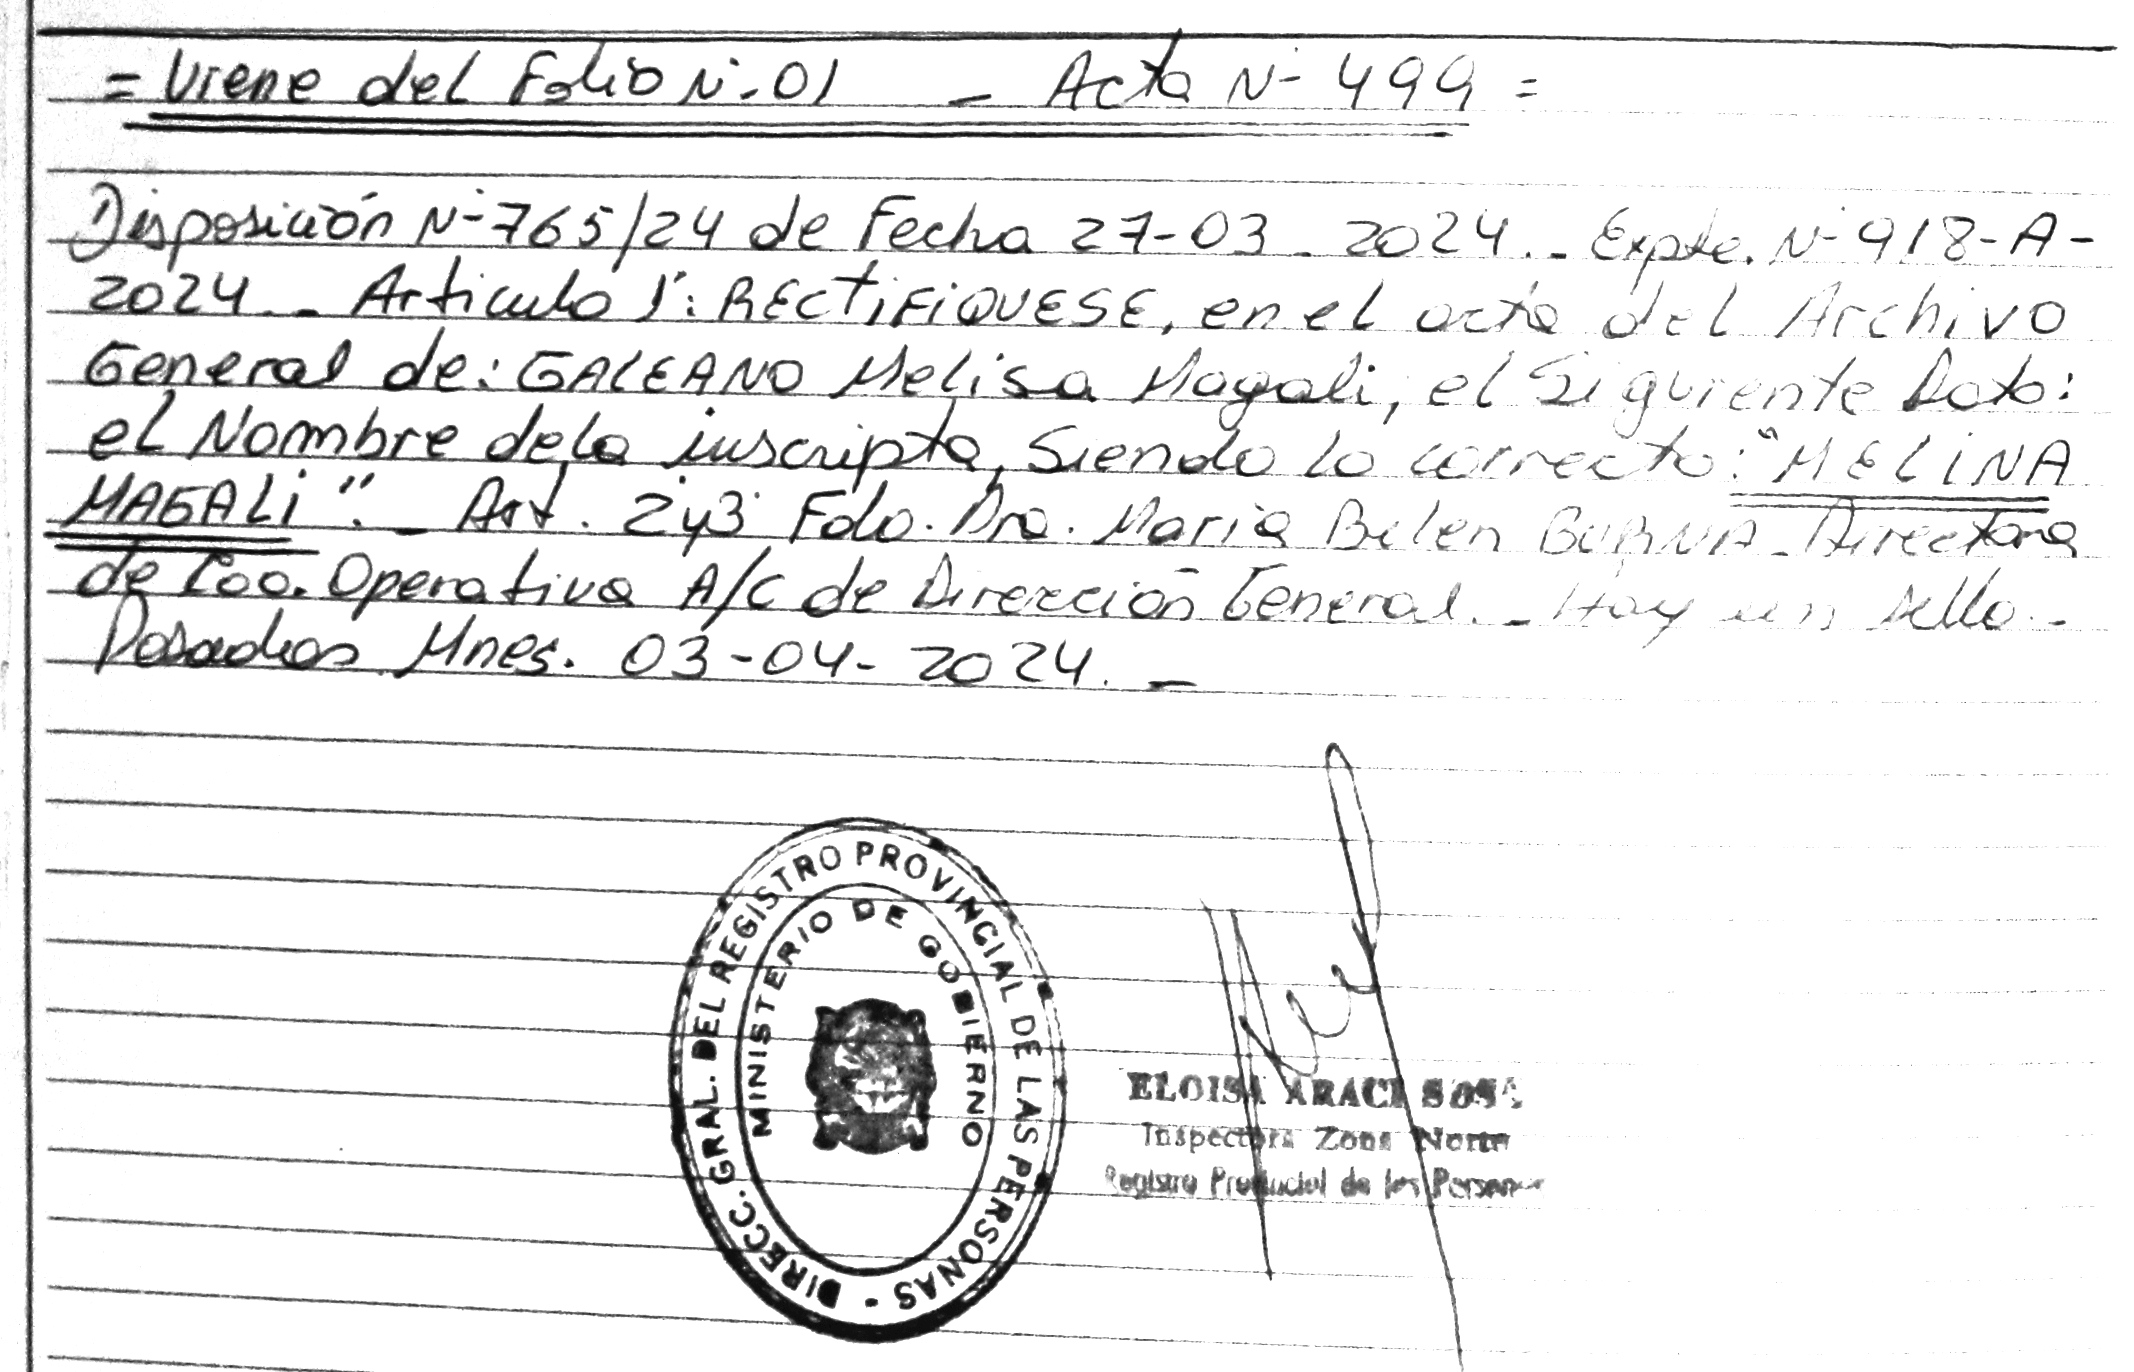 = Viene del Folio N°-01 - Acta N°- 499 =
Disposición N°-765/24 de Fecha 27-03-2024.- Expte. N°-918-A-
2024.- Articulo 1°: RECTIFIQUESE, en el acta del Archivo
General de: GALEANO Melisa Magali, el Siguiente Dato:
el Nombre de la inscripta, Siendo lo correcto: "MELINA
MAGALI".- Art. 2°y3° Fdo. Dra. Maria Belen - Directora
de Coo. Operativa A/C de Dirección General.- Hay un sello.-
Posadas Mnes. 03-04-2024.-
DIRECC. GRAL. DEL REGISTRO PROVINCIAL DE LAS PERSONAS -
MINISTERIO DE GOBIERNO
ELOISA ARACI SOSA
Inspectora Zona Norte
Registro Provincial de las Personas